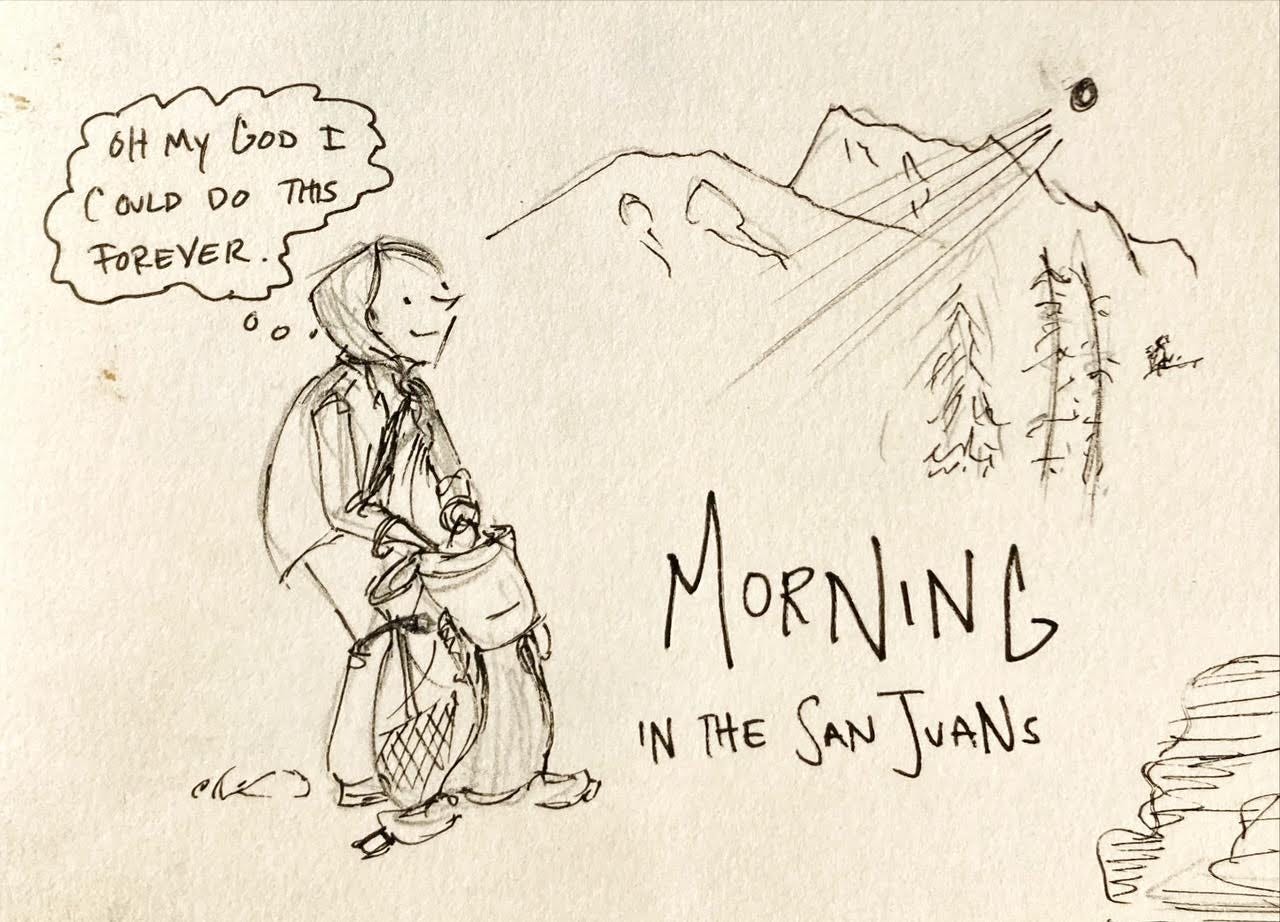 OH MY GOD I
COULD DO THIS
FOREVER.
MORNING
IN THE SAN JUANS